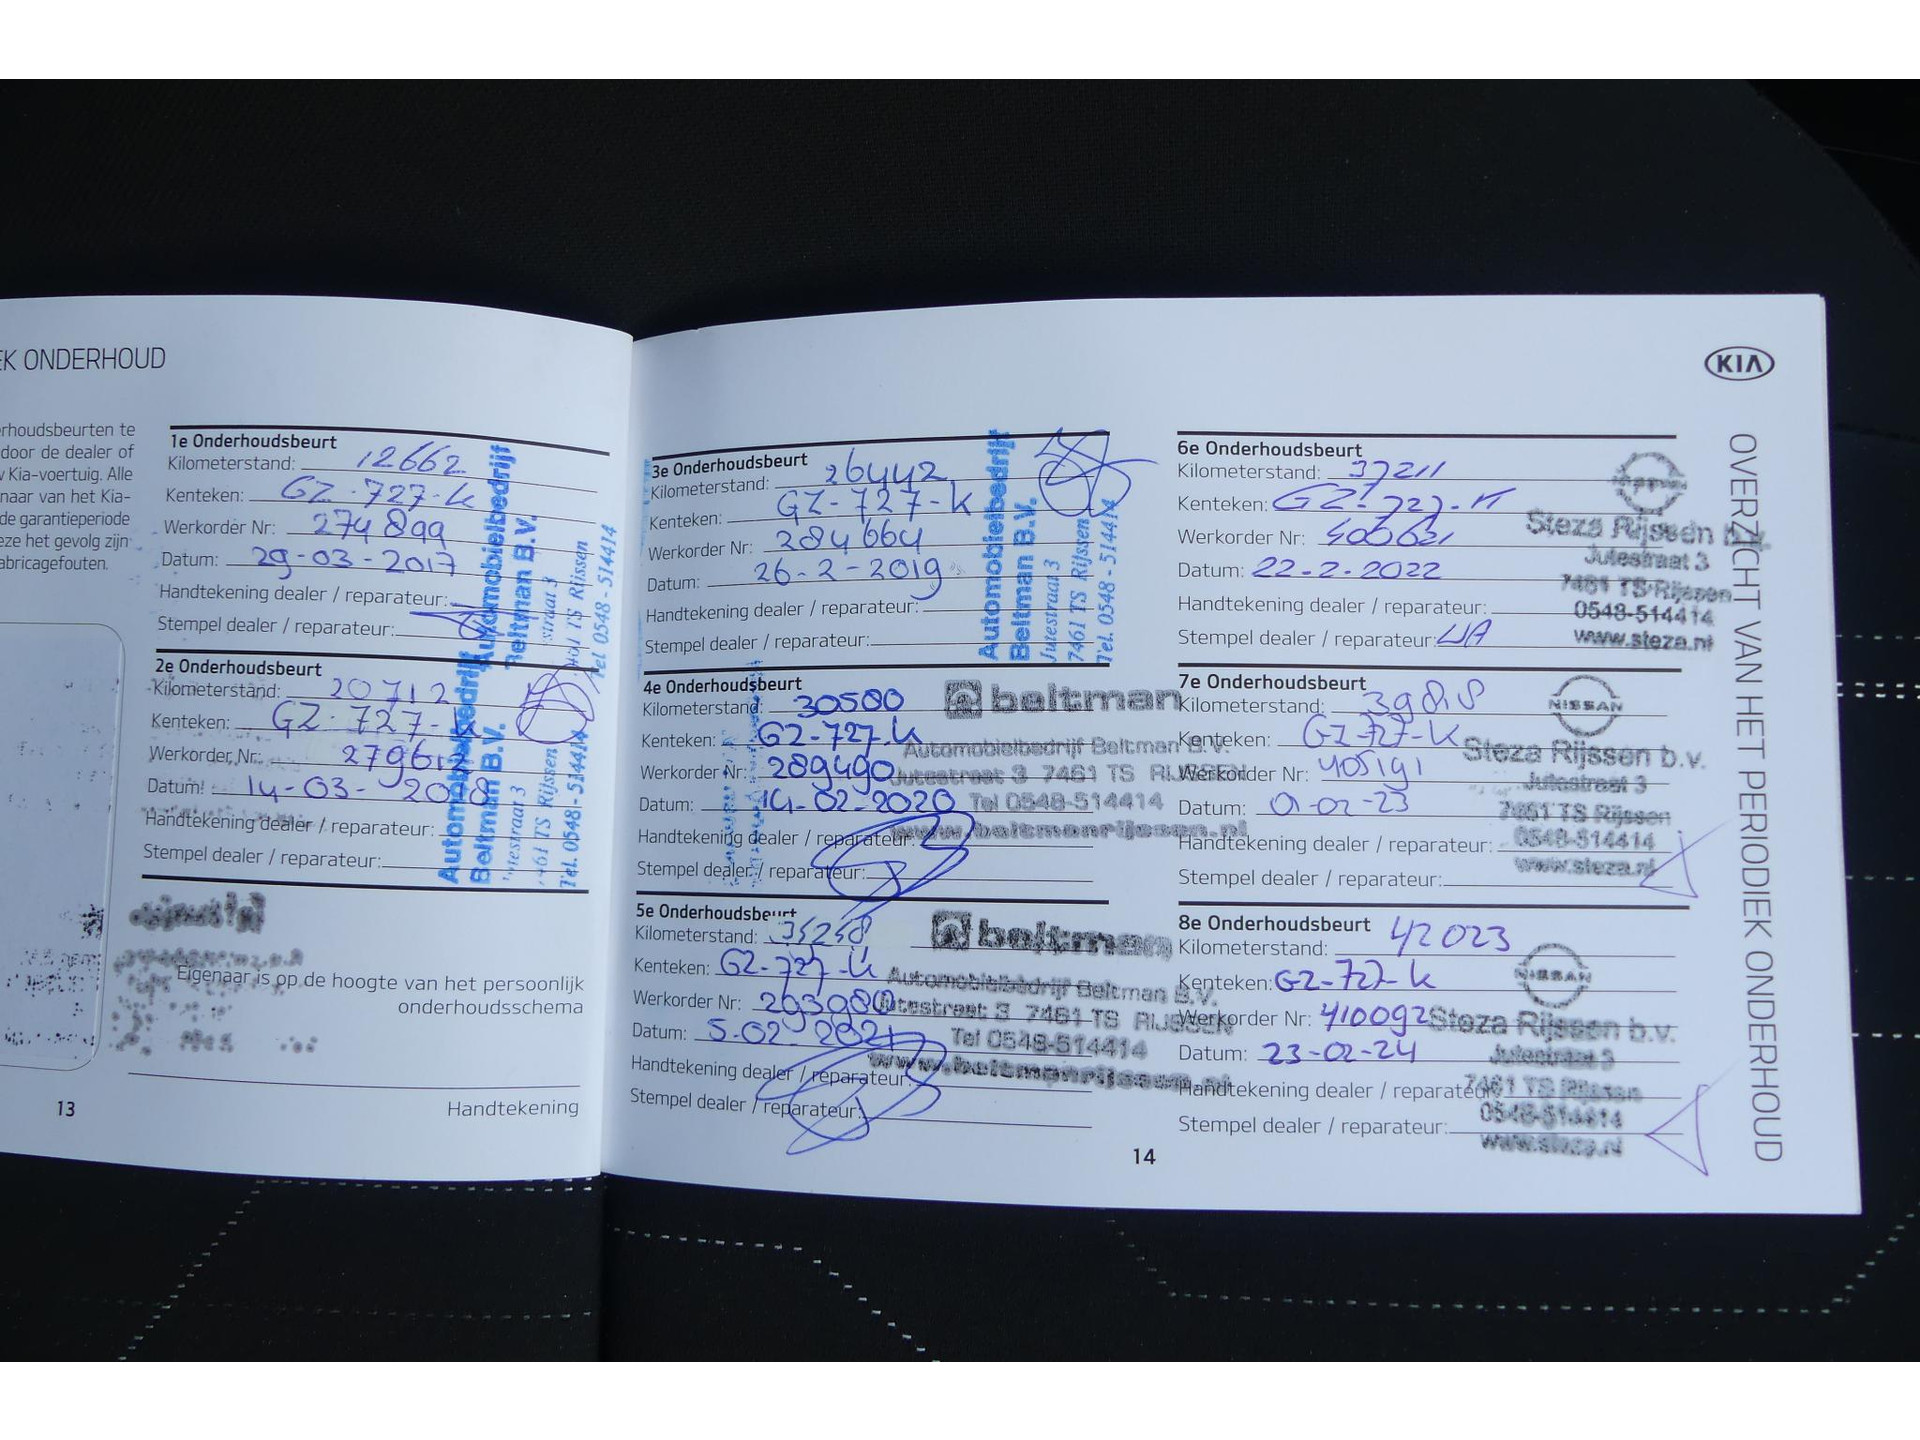 EK ONDERHOUD
rhoudsbeurten te
door de dealer of
v Kia-voertuig. Alle
naar van het Kia-
de garantieperiode
eze het gevolg zijn
abricagefouten.
1e Onderhoudsbeurt
Kilometerstand: 12662
Kenteken: GZ-727-K
Werkorder Nr: 274899
Datum: 29-03-2017
Handtekening dealer / reparateur:
Stempel dealer / reparateur:
Automobielbedrijf
Beltman B.V.
TS Rijssen
Tel 0548 - 514414
2e Onderhoudsbeurt
Kilometerstand: 20712
Kenteken: GZ-727-K
Werkorder Nr.:
Datum: 14-03-2018
Handtekening dealer / reparateur:
Stempel dealer / reparateur:
Automobielbedrijf
Beltman B.V.
7461 TS Rijssen
Tel. 0548 - 514414
Eigenaar is op de hoogte van het persoonlijk
onderhoudsschema
Handtekening
13
KIA
OVERZICHT VAN HET PERIODIEK ONDERHOUD
3e Onderhoudsbeurt
Kilometerstand: 26442
Kenteken: GZ-727-K
Werkorder Nr: 284664
Datum: 26-2-2019
Handtekening dealer / reparateur:
Stempel dealer / reparateur:
Automobielbedrijf
Beltman B.V.
Jutestraat 3
7461 TS Rijssen
Tel. 0548 - 514414
4e Onderhoudsbeurt
Kilometerstand: 30500
Kenteken: GZ-727-K
Werkorder Nr: 289490
Datum: 14-02-2020
Handtekening dealer / reparateur:
Stempel dealer / reparateur:
beltman
Automobielbedrijf Beltman B.V.
Jutestraat 3 7461 TS RIJSSEN
Tel 0548-514414
www.beltmanrijssen.nl
5e Onderhoudsbeurt
Kilometerstand: 35258
Kenteken: GZ-727-K
Werkorder Nr: 293080
Datum: 5-02-2021
Handtekening dealer / reparateur:
Stempel dealer / reparateur:
beltman
Automobielbedrijf Beltman B.V.
Jutestraat 3 7461 TS RIJSSEN
Tel 0548-514414
www.beltmanrijssen.nl
14
6e Onderhoudsbeurt
Kilometerstand: 37211
Kenteken: GZ-727-K
Werkorder Nr:
Datum: 22-2-2022
Handtekening dealer / reparateur:
Stempel dealer / reparateur:
Steza Rijssen b.v.
Jutestraat 3
7461 TS Rijssen
0548-514414
www.steza.nl
7e Onderhoudsbeurt
Kilometerstand:
Kenteken: GZ-727-K
Werkorder Nr: 405191
Datum: 01-02-23
Handtekening dealer / reparateur:
Stempel dealer / reparateur:
NISSAN
Steza Rijssen b.v.
Jutestraat 3
7461 TS Rijssen
0548-514414
www.steza.nl
8e Onderhoudsbeurt
Kilometerstand: 42023
Kenteken: GZ-727-K
Werkorder Nr: 410092
Datum: 23-02-24
Handtekening dealer / reparateur:
Stempel dealer / reparateur:
NISSAN
Steza Rijssen b.v.
Jutestraat 3
7461 TS Rijssen
0548-514414
www.steza.nl